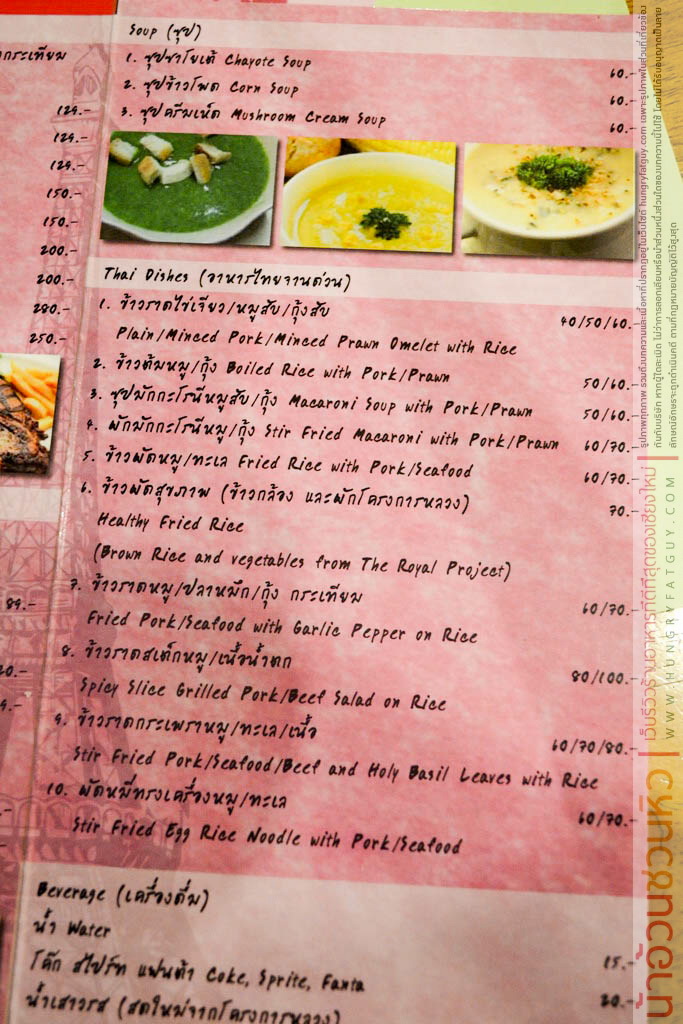 กระเทียม
129.-
129.-
129.-
150.-
150.-
200.-
200.-
280.-
250.-
89.-
Soup (ซุป)
1. ซุปชาโยเต้ Chayote Soup 60.-
2. ซุปข้าวโพด Corn Soup 60.-
3. ซุปครีมเห็ด Mushroom Cream Soup 60.-
Thai Dishes (อาหารไทยจานด่วน)
1. ข้าวราดไข่เจียว/หมูสับ/กุ้งสับ 40/50/60.-
Plain/Minced Pork/Minced Prawn Omelet with Rice
2. ข้าวต้มหมู/กุ้ง Boiled Rice with Pork/Prawn 50/60.-
3. ซุปมักกะโรนีหมูสับ/กุ้ง Macaroni Soup with Pork/Prawn 50/60.-
4. ผักมักกะโรนีหมู/กุ้ง Stir Fried Macaroni with Pork/Prawn 60/70.-
5. ข้าวผัดหมู/ทะเล Fried Rice with Pork/Seafood 60/70.-
6. ข้าวผัดสุขภาพ (ข้าวกล้อง และผักโครงการหลวง) 70.-
Healthy Fried Rice
(Brown Rice and vegetables from The Royal Project)
7. ข้าวราดหมู/ปลาหมึก/กุ้ง กระเทียม 60/70.-
Fried Pork/Seafood with Garlic Pepper on Rice
8. ข้าวราดสเต็กหมู/เนื้อน้ำตก 80/100.-
Spicy Slice Grilled Pork/Beef Salad on Rice
9. ข้าวราดกระเพราหมู/ทะเล/เนื้อ 60/70/80.-
Stir Fried Pork/Seafood/Beef and Holy Basil Leaves with Rice
10. ผัดหมี่ทรงเครื่องหมู/ทะเล 60/70.-
Stir Fried Egg Rice Noodle with Pork/Seafood
Beverage (เครื่องดื่ม)
น้ำ Water
โค๊ก สไปร์ท แฟนต้า Coke, Sprite, Fanta 15.-
น้ำเสาวรส (สดใหม่จากโครงการหลวง) 20.-
เว็บรีวิวร้านอาหารที่ดีที่สุดของเชียงใหม่
WWW.HUNGRYFATGUY.COM